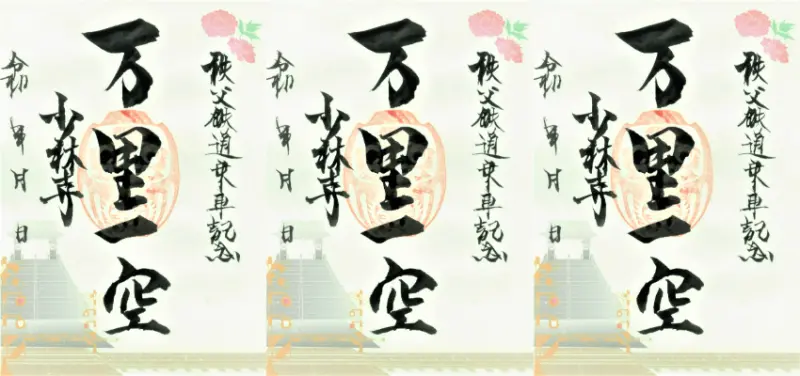 秩父鉄道乗車記念
万里一空
少林寺
令和 年 月 日
秩父鉄道乗車記念
万里一空
少林寺
令和 年 月 日
秩父鉄道乗車記念
万里一空
少林寺
令和 年 月 日